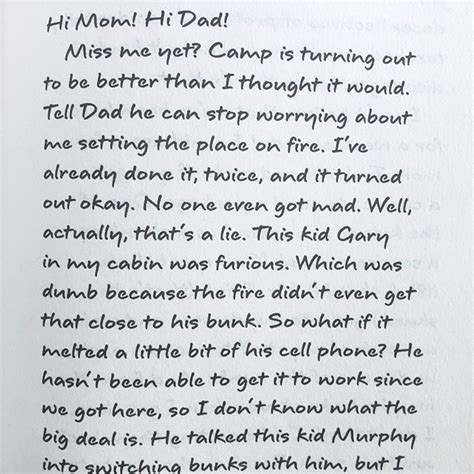 Hi Mom! Hi Dad!
Miss me yet? Camp is turning out
to be better than I thought it would.
Tell Dad he can stop worrying about
me setting the place on fire. I've
already done it, twice, and it turned
out okay. No one even got mad. Well,
actually, that's a lie. This kid Gary
in my cabin was furious. Which was
dumb because the fire didn't even get
that close to his bunk. So what if it
melted a little bit of his cell phone? He
hasn't been able to get it to work since
we got here, so I don't know what the
big deal is. He talked this kid Murphy
into switching bunks with him, but I